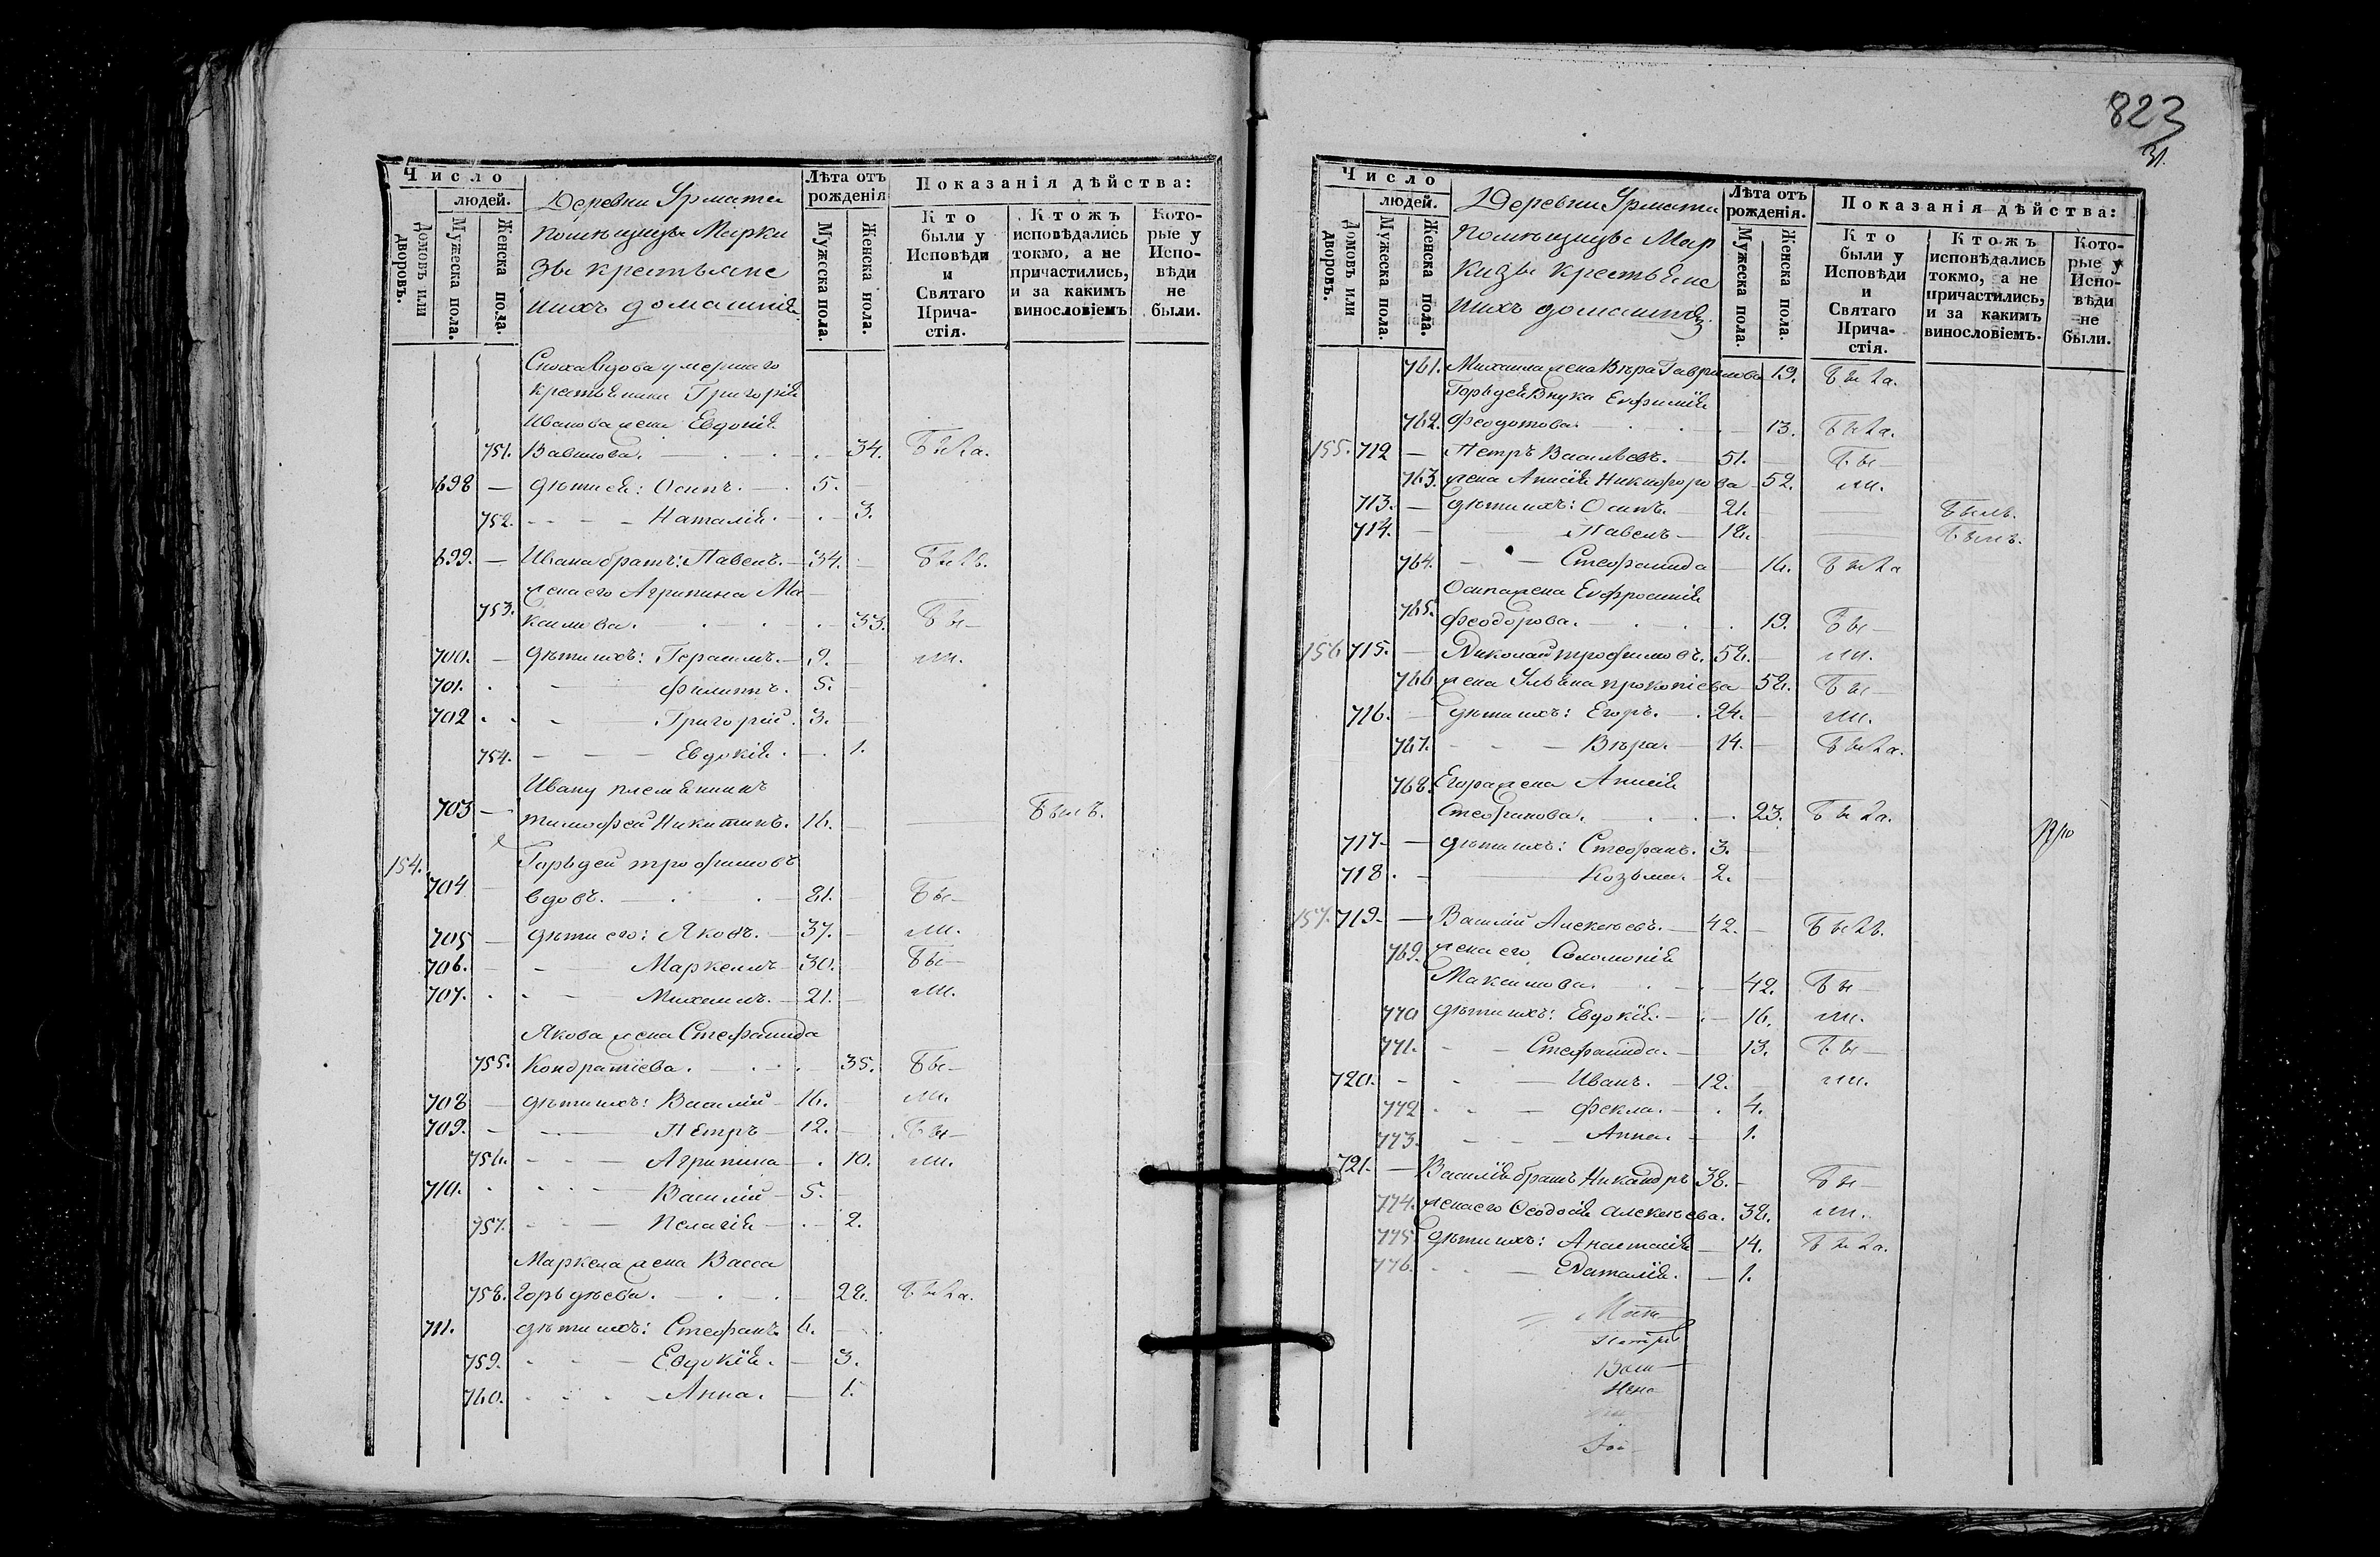 823
31.
Число
людей.
Домовъ или дворовъ.
Мужеска пола.
Женска пола.
Деревни Урмата
помѣщицы Марки
зы крестьяне
ихъ домашнія
Лѣта отъ рожденія
Мужеска пола.
Женска пола.
Показанія дѣйства:
Кто были у Исповѣди и Святаго Причастія.
Ктожъ исповѣдались токмо, а не причастились, и за какимъ винословіемъ
Которые у Исповѣди не были.
Сноха вдова умершаго
крестьянина Григорія
Иванова жена Евдокія
751. Вавилова. 34. Была.
698 дѣти ея: Осипъ. 5.
752. Наталія. 3.
699. Ивана братъ: Павелъ. 34. Былъ.
жена его Агрипина Ма
753. ксимова. 33. Бы
700. дѣти ихъ: Герасимъ. 9. ли.
701. Филиппъ. 5.
702 Григорій. 3.
754. Евдокія. 1.
Ивану племянникъ
703 тимофей Никитинъ. 16. Былъ.
154. Горьдей трофимовъ
704 вдовъ. 81. Бы
705 дѣти его: Яковъ. 37. ли.
706. Маркеллъ 30. Бы
707. Михаилъ. 21. ли.
Якова жена Стефанида
755. Кондратіева. 35. Бы
708 дѣти ихъ: Василій 16. ли
709. Петръ 12. Бы
756. Агрипина 10. ли.
710. Василій 5.
757. Пелагія 2.
Маркела жена Васса
758. Горьдѣева. 28. Была.
711. дѣти ихъ: Стефанъ 6.
759. Евдокія. 3.
760. Анна. 1.
Число
людей.
Домовъ или дворовъ.
Мужеска пола.
Женска пола.
Деревни Урмата
помѣщицы Мар
кизы крестьяне
ихъ домашнія
Лѣта отъ рожденія.
Мужеска пола.
Женска пола.
Показанія дѣйства:
Кто были у Исповѣди и Святаго Причастія.
Ктожъ исповѣдались токмо, а не причастились, и за какимъ винословіемъ.
Которые у Исповѣди не были.
761. Михаила жена Вѣра Гаврилова 19. Была.
Горьдея Внука Евфимія
762. Феодотова. 13. Была.
155. 712 Петръ Васильевъ. 51. Бы
763. жена Анисія Никифорова 52. ли.
713. дѣти ихъ: Осипъ. 21. Былъ.
714. Павелъ 18. Былъ.
764. Стефанида 16. Была
Осипа жена Евфросинія
765. Феодорова. 19. Бы
156 715. Николай трофимовъ. 58. ли.
766 жена Ульяна прокопіева 58. Бы
716. дѣти ихъ: Егоръ. 24. ли.
767. Вѣра. 14. Была.
768. Егора жена Анисія
Стефанова. 23. Была.
717. дѣти ихъ: Стефанъ. 3.
718 Козьма. 2.
157. 719. Василій Алексѣевъ. 42. Былъ.
769. жена его Соломонія
Максимова. 42. Бы
770 дѣти ихъ: Евдокія. 16. ли.
771. Стефанида. 13. Бы
720. Иванъ. 12. ли.
772 Фекла. 4.
773. Анна. 1.
721. Василія братъ Никандръ 38. Бы
774. жена его Феодосія алексѣева. 38. ли.
775. дѣти ихъ: Анастасія 14. Была.
776. Наталія. 1.